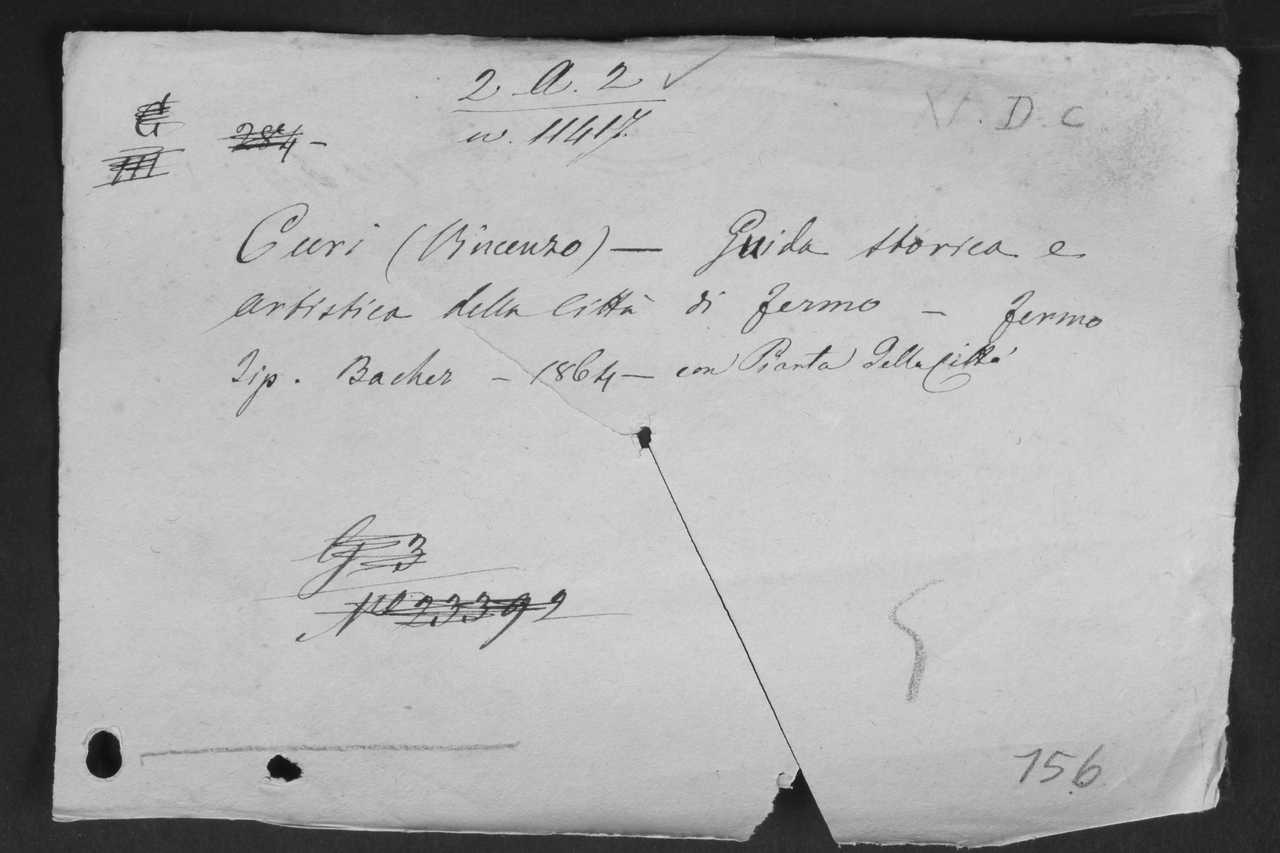 2 A. 2
V. D. C
284 -
n. 11417
G
III
Curi (Vincenzo) — Guida storica e
artistica della Città di Fermo — Fermo
Tip. Bacher — 1864 — con Pianta della Città
G 3
Nº 23392
156